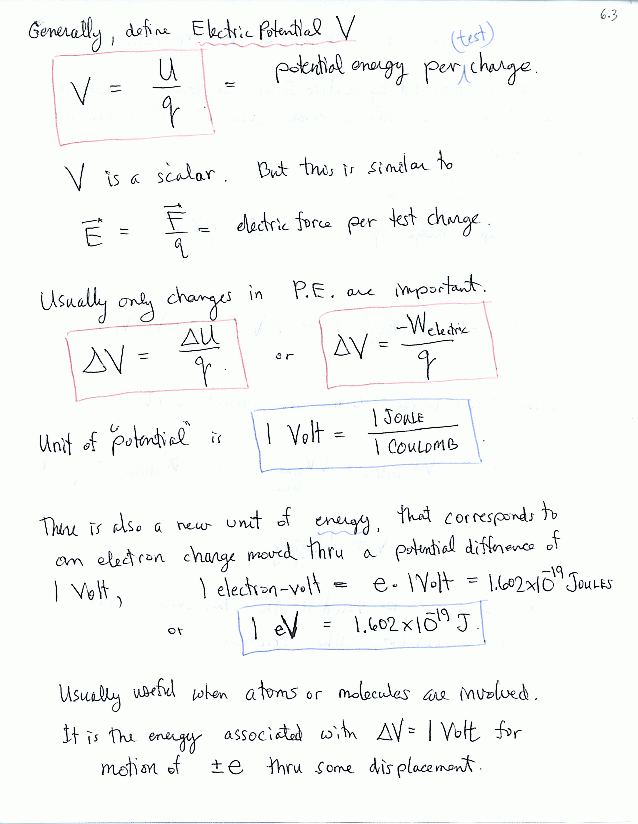 6.3
Generally, define Electric Potential V
(test)
V = U/q = potential energy per charge.
V is a scalar. But this is similar to
E⃗ = F⃗/q = electric force per test charge.
Usually only changes in P.E. are important.
ΔV = ΔU/q. or ΔV = -Welectric/q
Unit of "potential" is 1 Volt = 1 JOULE/1 COULOMB.
There is also a new unit of energy, that corresponds to
an electron charge moved thru a potential difference of
1 Volt, 1 electron-volt = e · 1 Volt = 1.602x10⁻¹⁹ JOULES
or 1 eV = 1.602x10⁻¹⁹ J.
Usually useful when atoms or molecules are involved.
It is the energy associated with ΔV = 1 Volt for
motion of ±e thru some displacement.